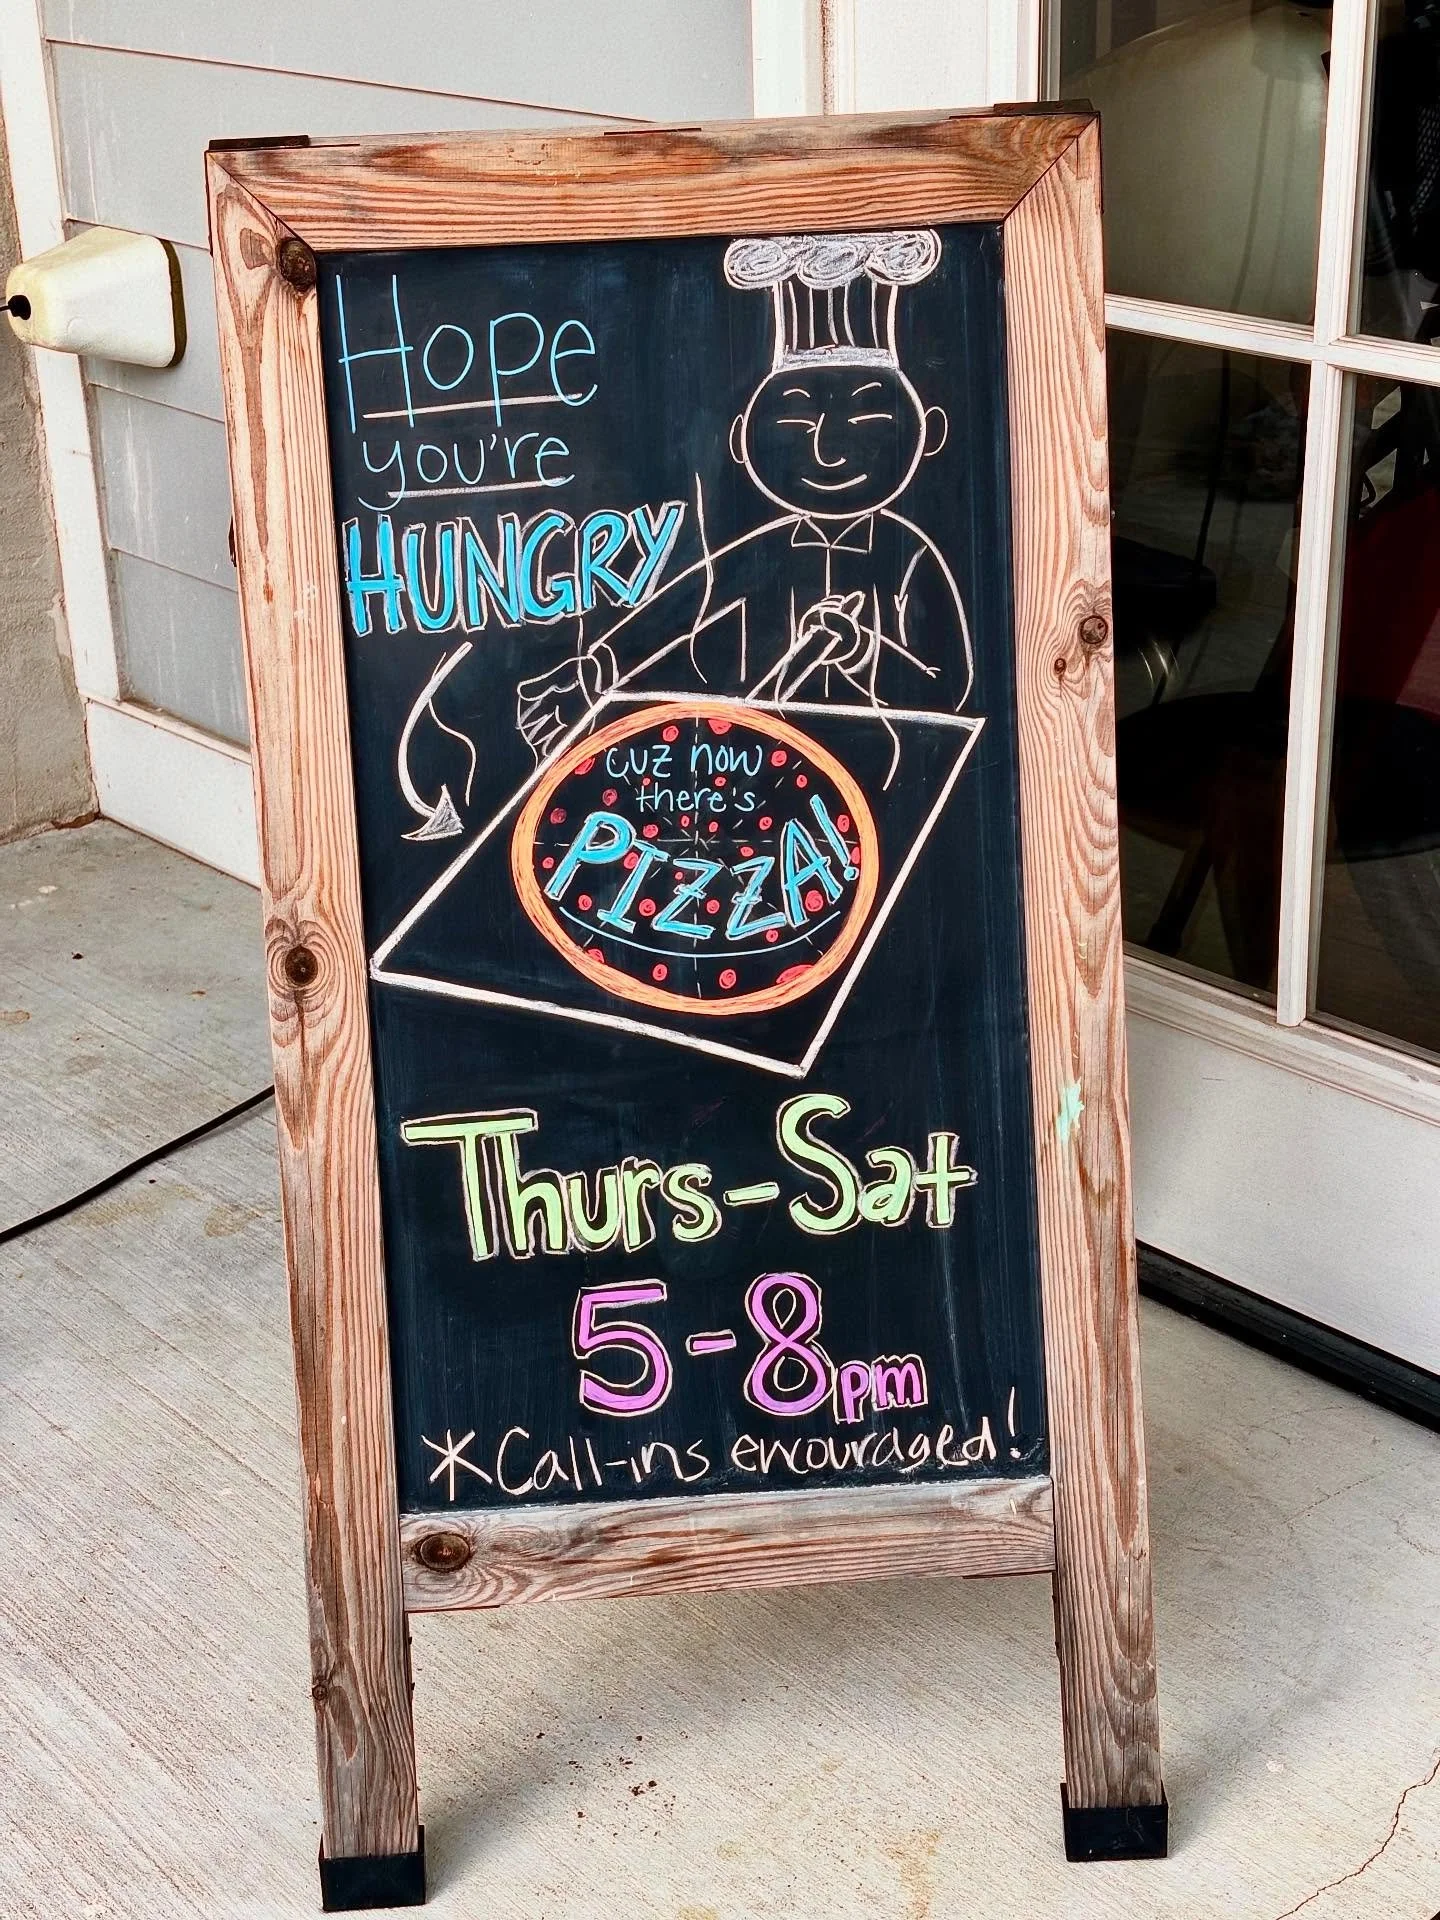 Hope
you're
HUNGRY
cuz now
there's
PIZZA!
Thurs-Sat
5-8pm
*Call-ins encouraged!